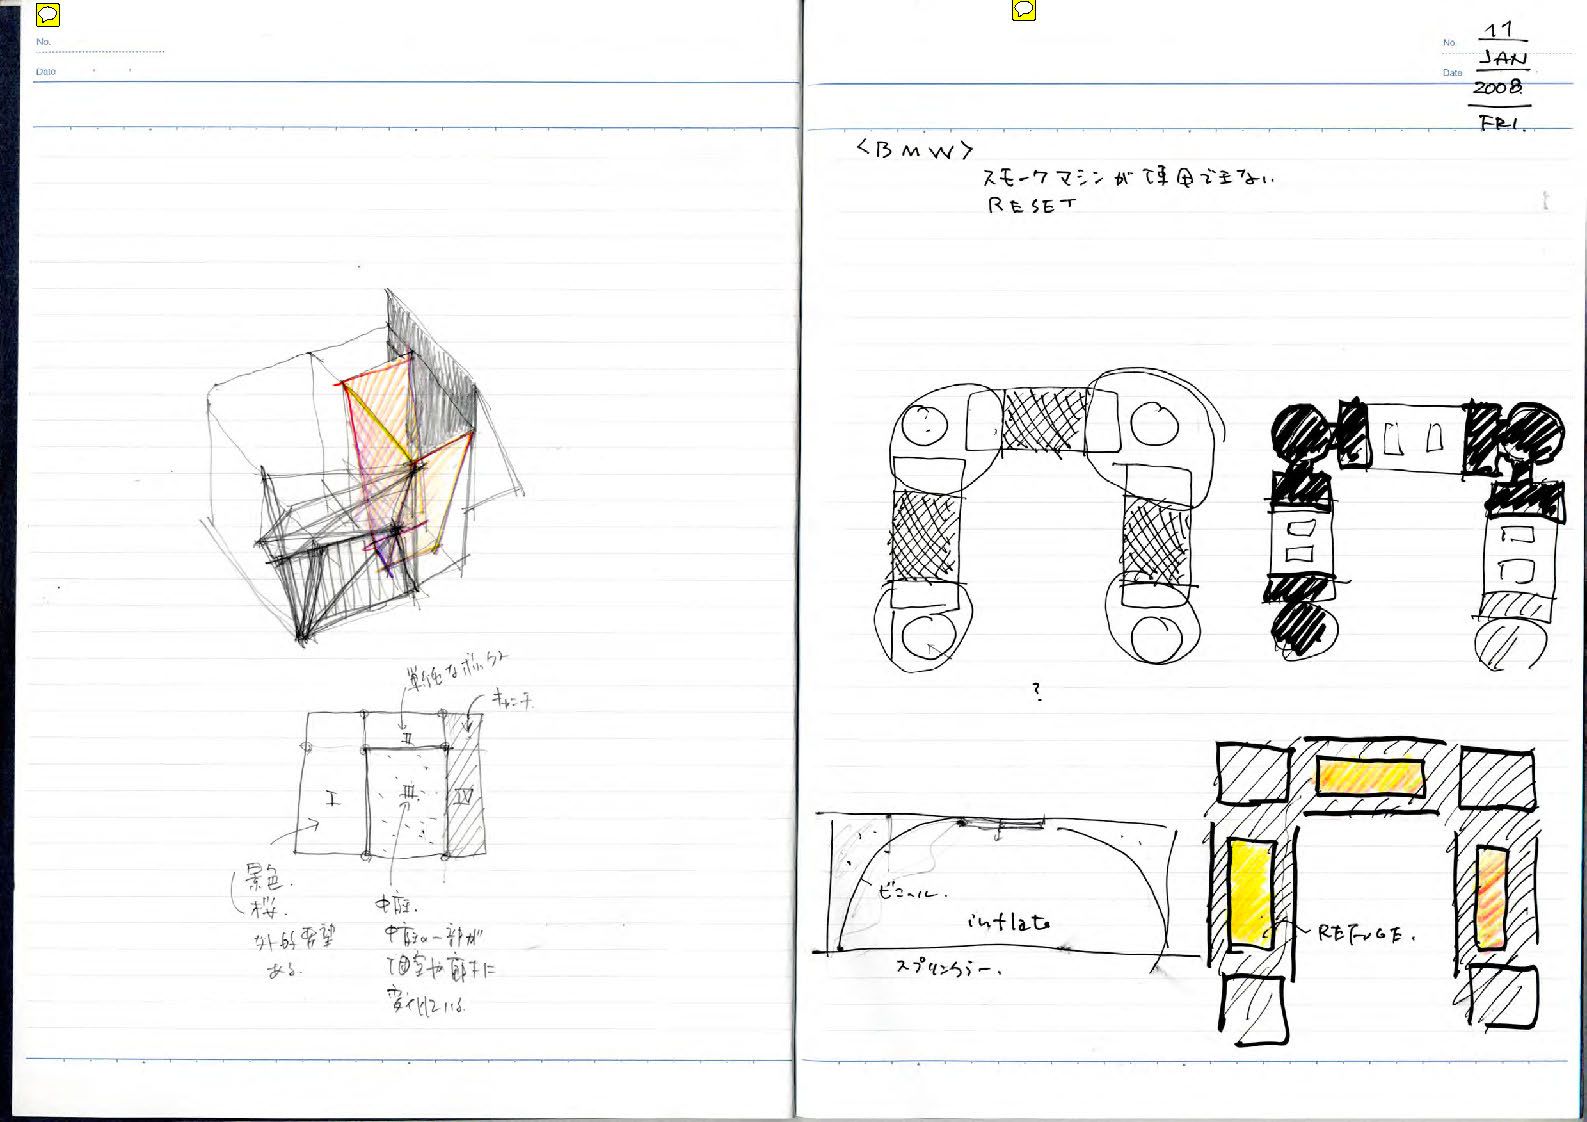 No.
Date
単純なボックス
キャンチ
I
II
III
IV
景色.
桜.
外的要望
ある.
中庭.
中庭の一部が
変化している.
No.
11
JAN
Date
2008.
FRI.
<BMW>
スモークマシンが使用できない.
RESET
?
ビニール.
inflate
スプリンクラー.
REFUGE.